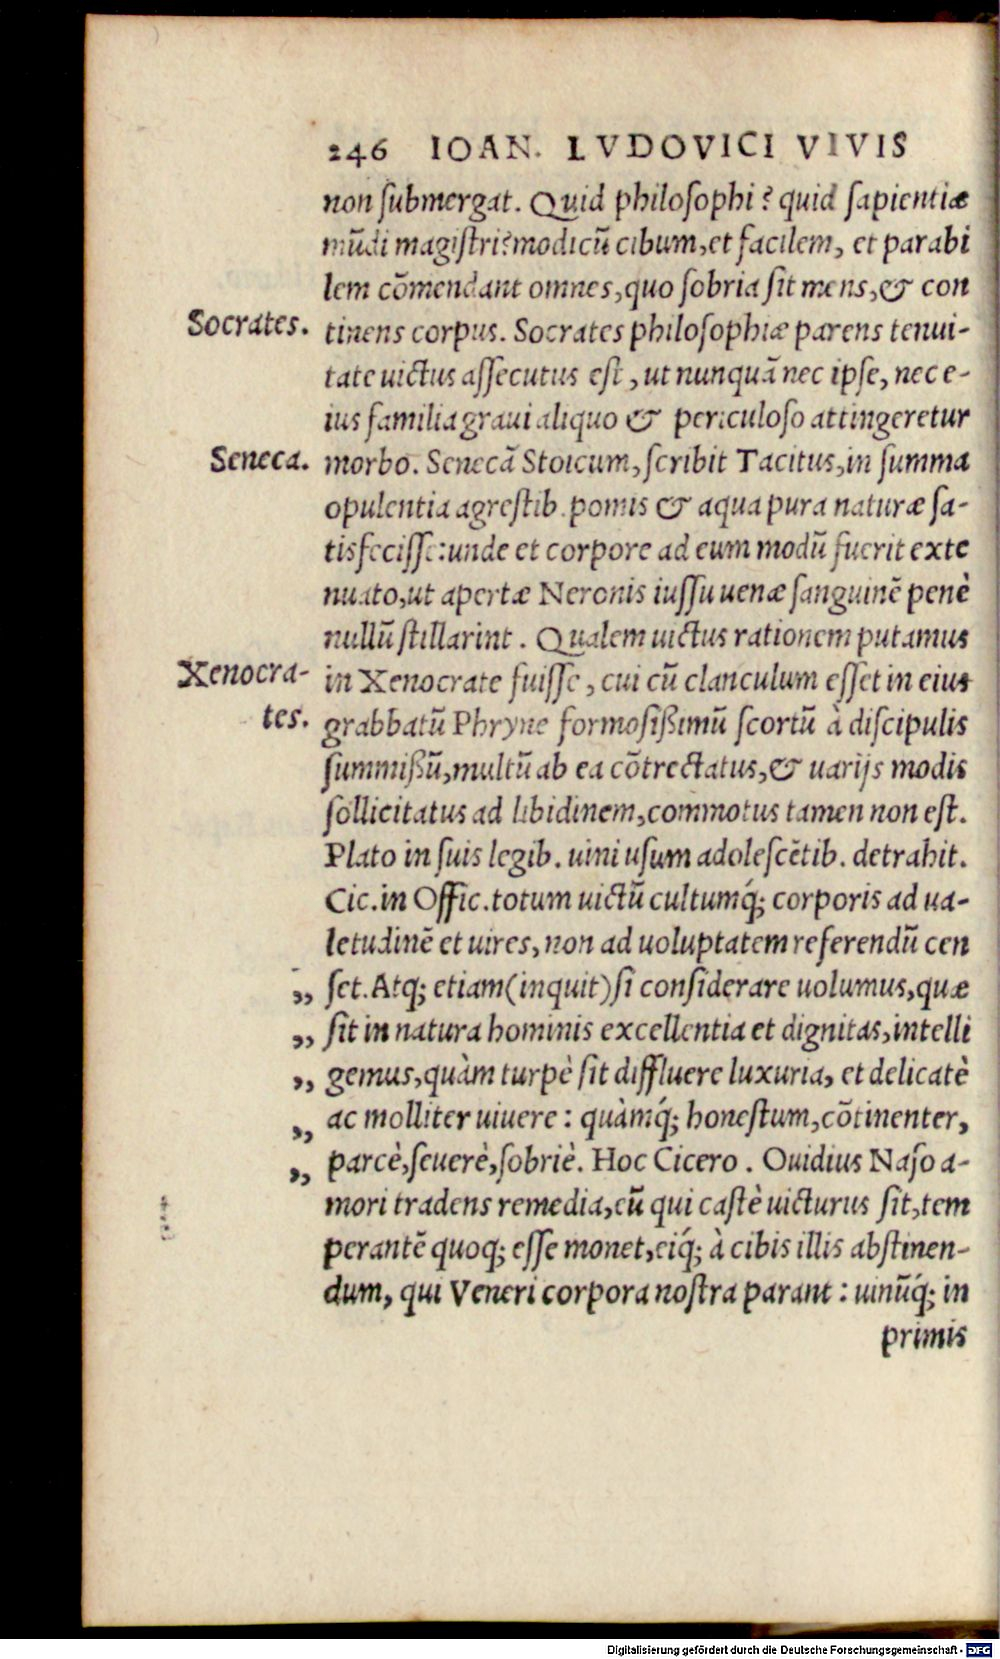 246 IOAN. LVDOVICI VIVIS
non ſubmergat. Quid philoſophi? quid ſapientiæ
mūdi magiſtri? modicū cibum, et facilem, et parabi
lem cōmendant omnes, quo ſobria ſit mens, & con
Socrates. tinens corpus. Socrates philoſophiæ parens tenui-
tate uictus aſſecutus eſt, ut nunquā nec ipſe, nec e-
ius familia graui aliquo & periculoſo attingeretur
Seneca. morbo. Senecā Stoicum, ſcribit Tacitus, in ſumma
opulentia agreſtib. pomis & aqua pura naturæ ſa-
tisfeciſſe: unde et corpore ad eum modū fuerit exte
nuato, ut apertæ Neronis iuſſu uenæ ſanguinē penè
nullū ſtillarint. Qualem uictus rationem putamus
Xenocra- in Xenocrate fuiſſe, cui cū clanculum eſſet in eius
tes. grabbatū Phryne formoſißimū ſcortū à diſcipulis
ſummißū, multū ab ea cōtrectatus, & uarijs modis
ſollicitatus ad libidinem, commotus tamen non eſt.
Plato in ſuis legib. uini uſum adoleſcētib. detrahit.
Cic. in Offic. totum uictū cultumq́; corporis ad ua-
letudinē et uires, non ad uoluptatem referendū cen
„ ſet. Atq; etiam (inquit) ſi conſiderare uolumus, quæ
„ ſit in natura hominis excellentia et dignitas, intelli
„ gemus, quàm turpè ſit diffluere luxuria, et delicatè
„ ac molliter uiuere: quàmq́; honeſtum, cōtinenter,
„ parcè, ſeuerè, ſobriè. Hoc Cicero. Ouidius Naſo a-
mori tradens remedia, eū qui caſtè uicturus ſit, tem
perantē quoq; eſſe monet, eiq́; à cibis illis abſtinen-
dum, qui Veneri corpora noſtra parant: uinūq́; in
primis
Digitalisierung gefördert durch die Deutsche Forschungsgemeinschaft - DFG